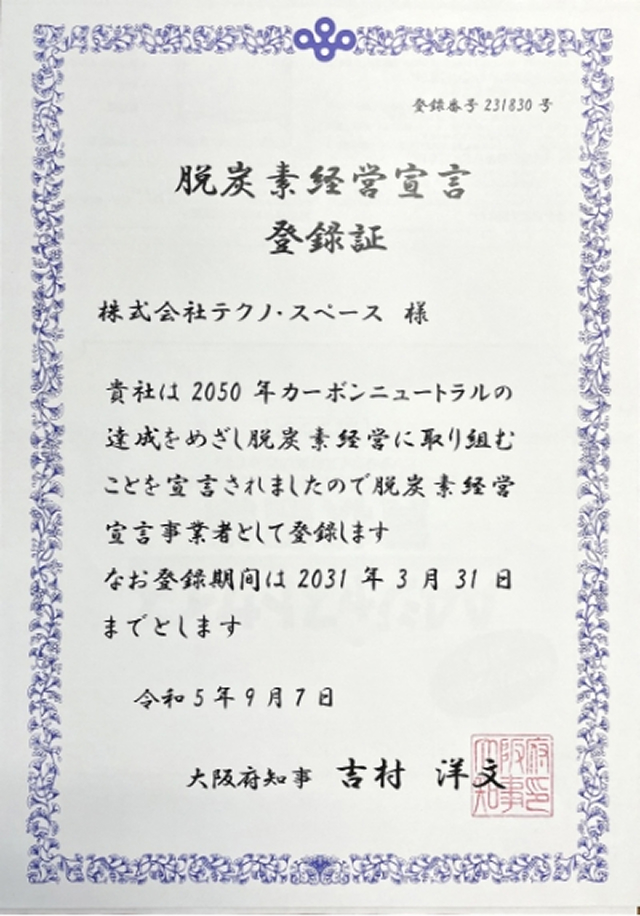 登録番号 231830 号
脱炭素経営宣言
登録証
株式会社テクノ・スペース 様
貴社は 2050 年カーボンニュートラルの
達成をめざし脱炭素経営に取り組む
ことを宣言されましたので脱炭素経営
宣言事業者として登録します
なお登録期間は 2031 年 3 月 31 日
までとします
令和 5 年 9 月 7 日
大阪府知事 吉村 洋文
大阪府知事印